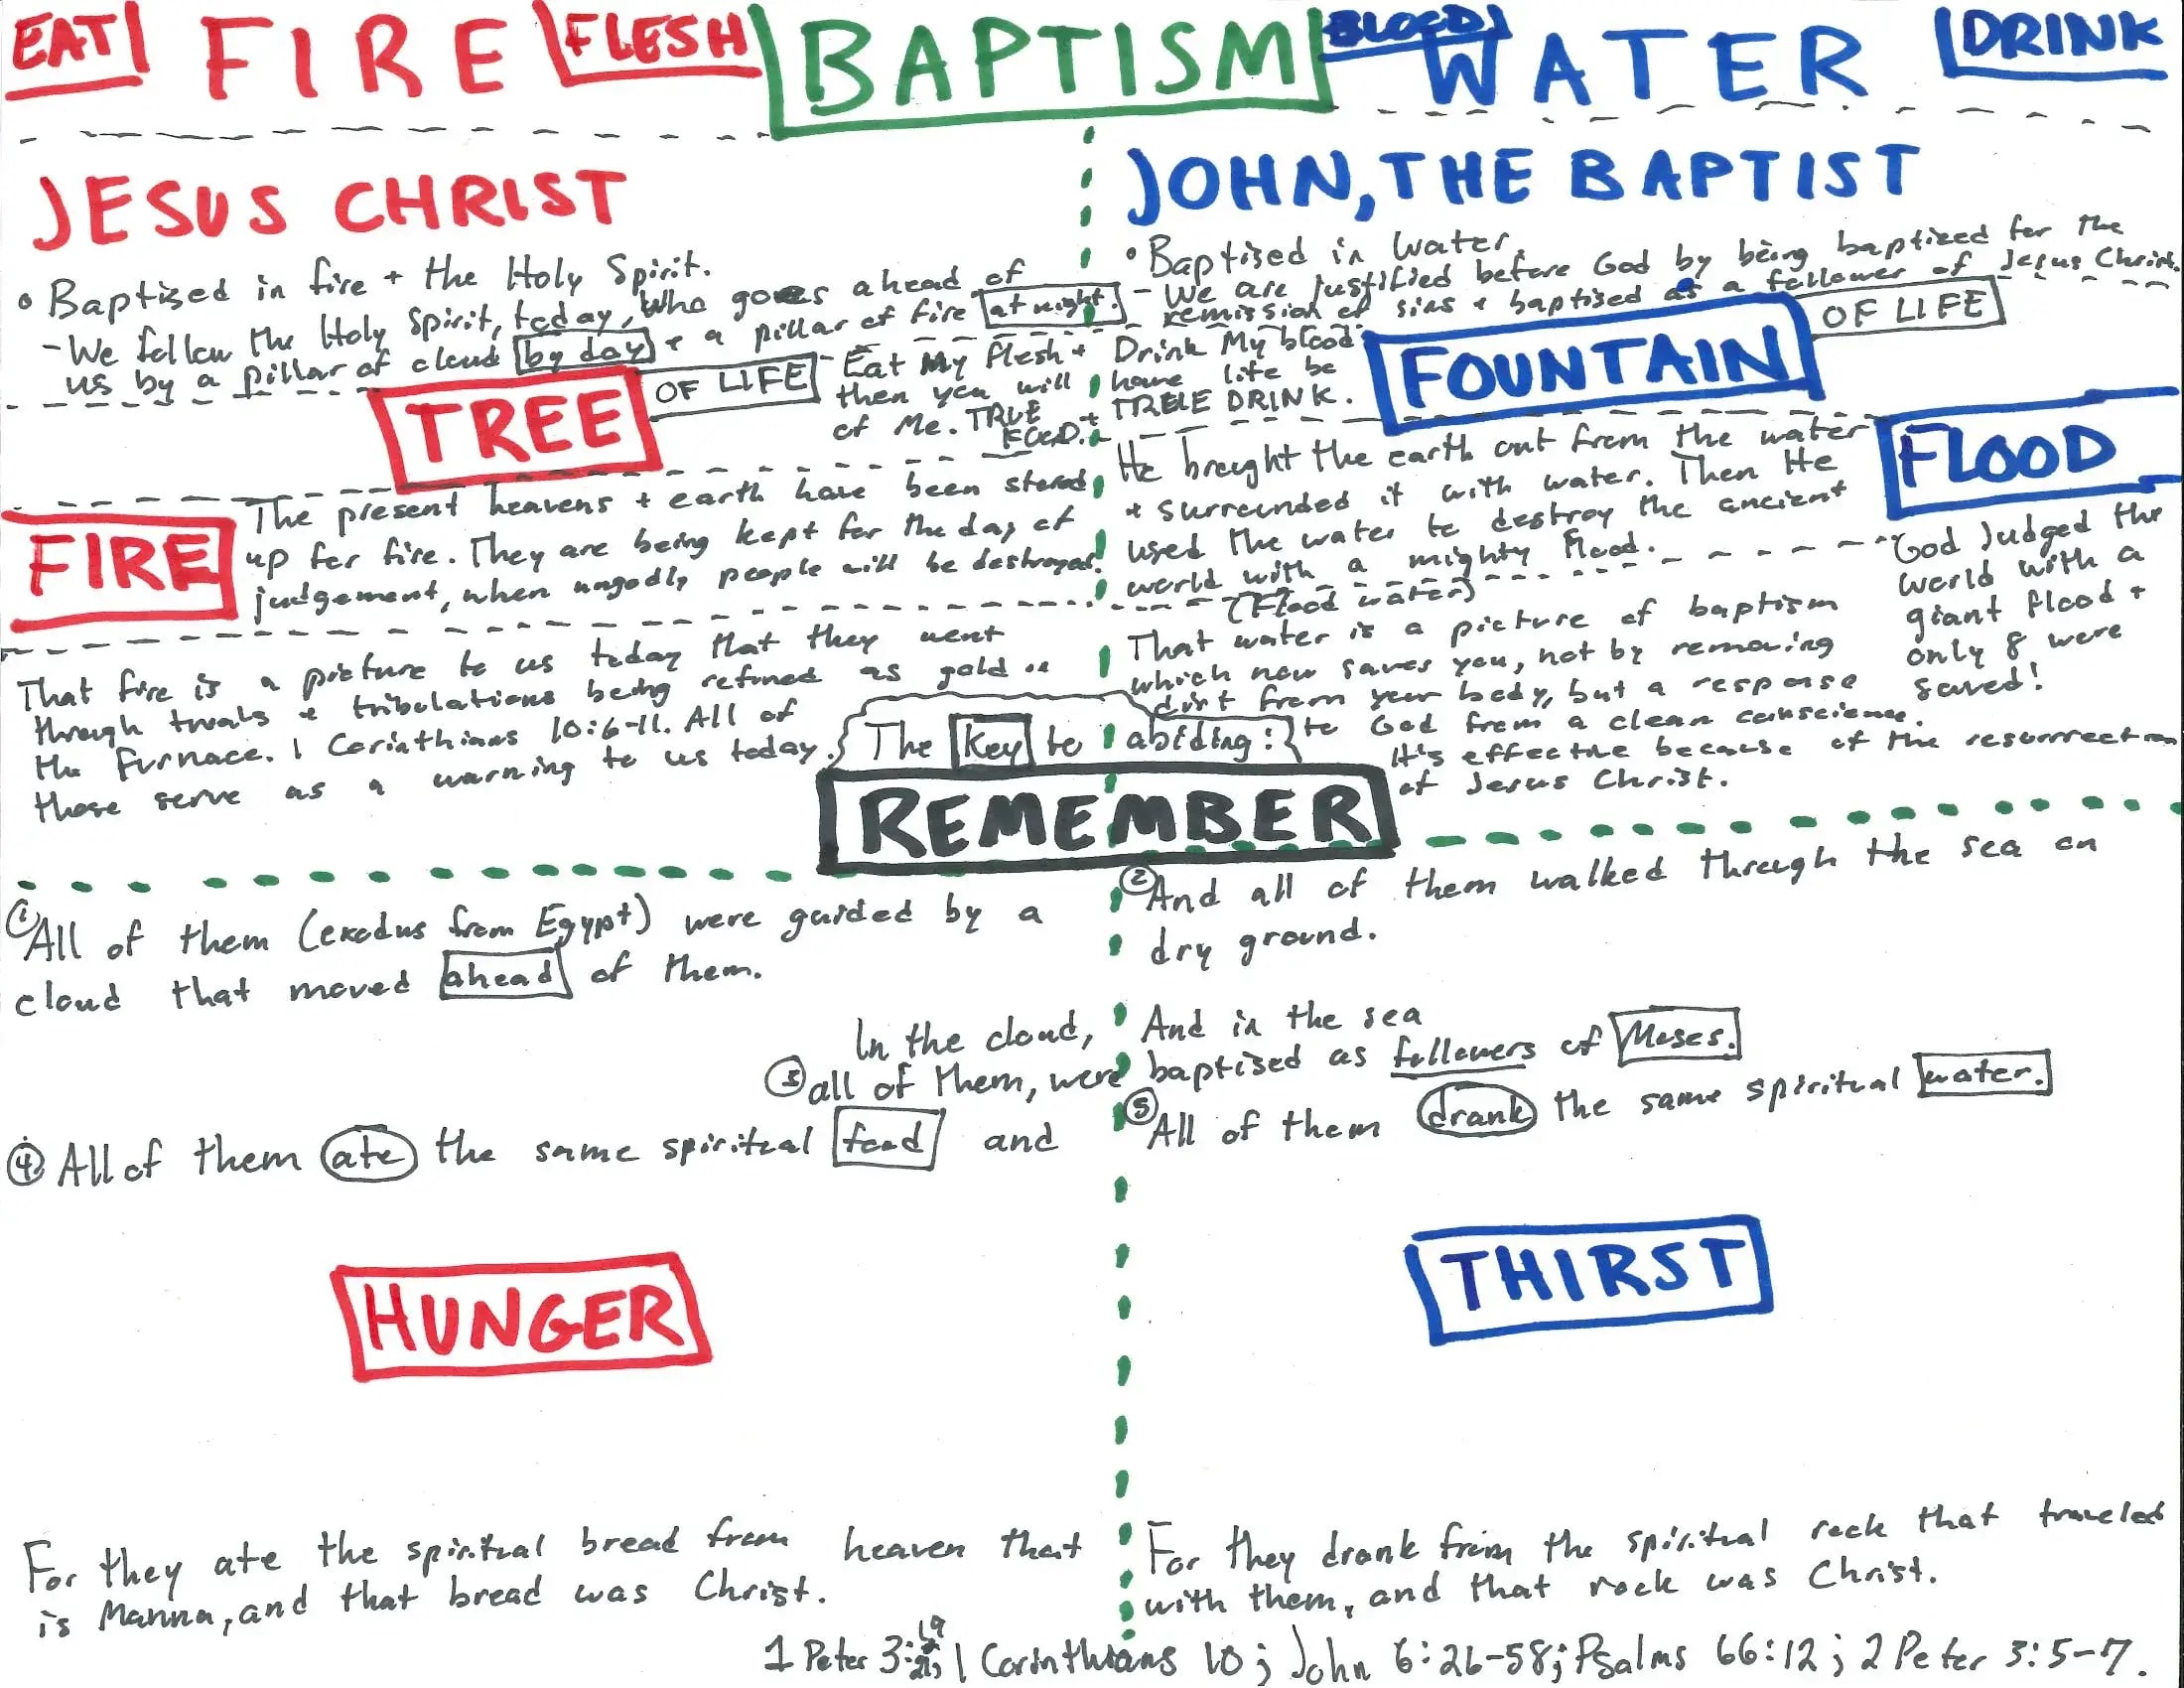 EAT FIRE FLESH BAPTISM BLOOD WATER DRINK
JESUS CHRIST
• Baptised in fire + the Holy Spirit.
- We follow the Holy Spirit, today, Who goes ahead of
us by a pillar of cloud by day + a pillar of fire at night.
JOHN, THE BAPTIST
• Baptised in Water.
- We are justified before God by being baptized for the
remission of sins + baptised as a follower of Jesus Christ.
TREE OF LIFE
- Eat My Flesh + Drink My blood
then you will have life be
of Me. TRUE FOOD. + TRUE DRINK.
FOUNTAIN OF LIFE
FIRE
The present heavens + earth have been stored
up for fire. They are being kept for the day of
judgement, when ungodly people will be destroyed.
He brought the earth out from the water
+ surrounded it with water. Then He
used the water to destroy the ancient
world with a mighty flood.
FLOOD
God Judged the
world with a
giant flood +
only 8 were
saved!
That fire is a picture to us today that they went
through trials + tribulations being refined as gold in
the furnace. 1 Corinthians 10:6-11. All of
those serve as a warning to us today.
(Flood water)
That water is a picture of baptism
which now saves you, not by removing
dirt from your body, but a response
to God from a clean conscience.
It's effective because of the resurrection
of Jesus Christ.
The Key to abiding:
REMEMBER
① All of them (exodus from Egypt) were guided by a
cloud that moved ahead of them.
② And all of them walked through the sea on
dry ground.
In the cloud, And in the sea
③ all of them, were baptised as followers of Moses.
④ All of them ate the same spiritual food and
⑤ All of them drank the same spiritual water.
HUNGER
THIRST
For they ate the spiritual bread from heaven that
is Manna, and that bread was Christ.
For they drank from the spiritual rock that traveled
with them, and that rock was Christ.
1 Peter 3:19 1 Corinthians 10; John 6:26-58; Psalms 66:12; 2 Peter 3:5-7.